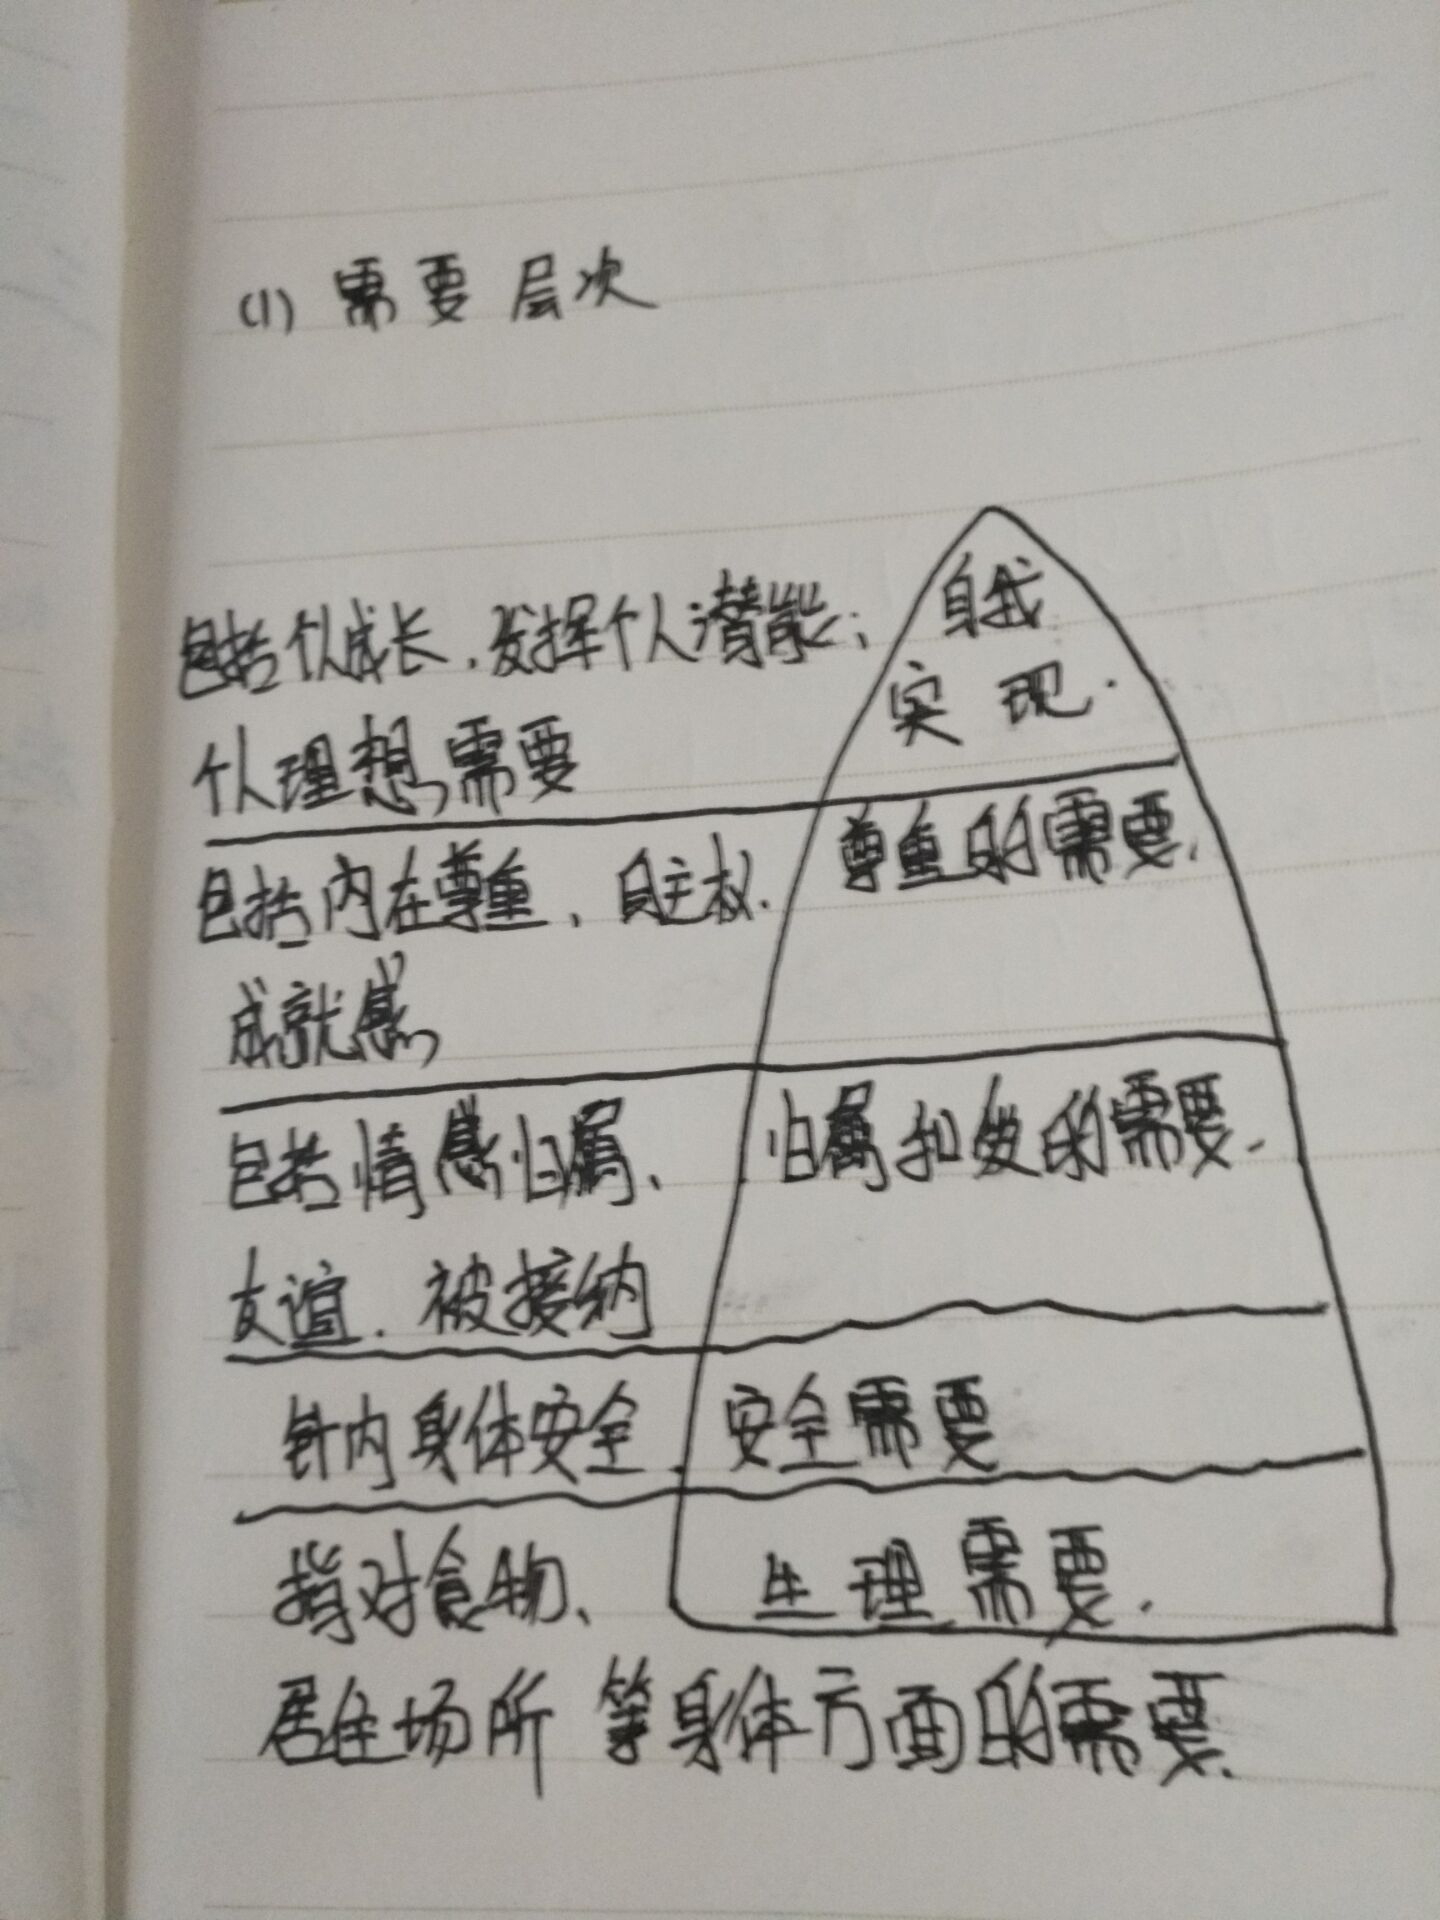 (1) 需要层次
包括个人成长、发挥个人潜能、 自我
个人理想需要 实现.
包括内在尊重、自主权. 尊重的需要.
成就感
包括情感归属、 归属和爱的需要.
友谊、被接纳
针内身体安全. 安全需要
指对食物、 生理需要.
居住场所等身体方面的需要.